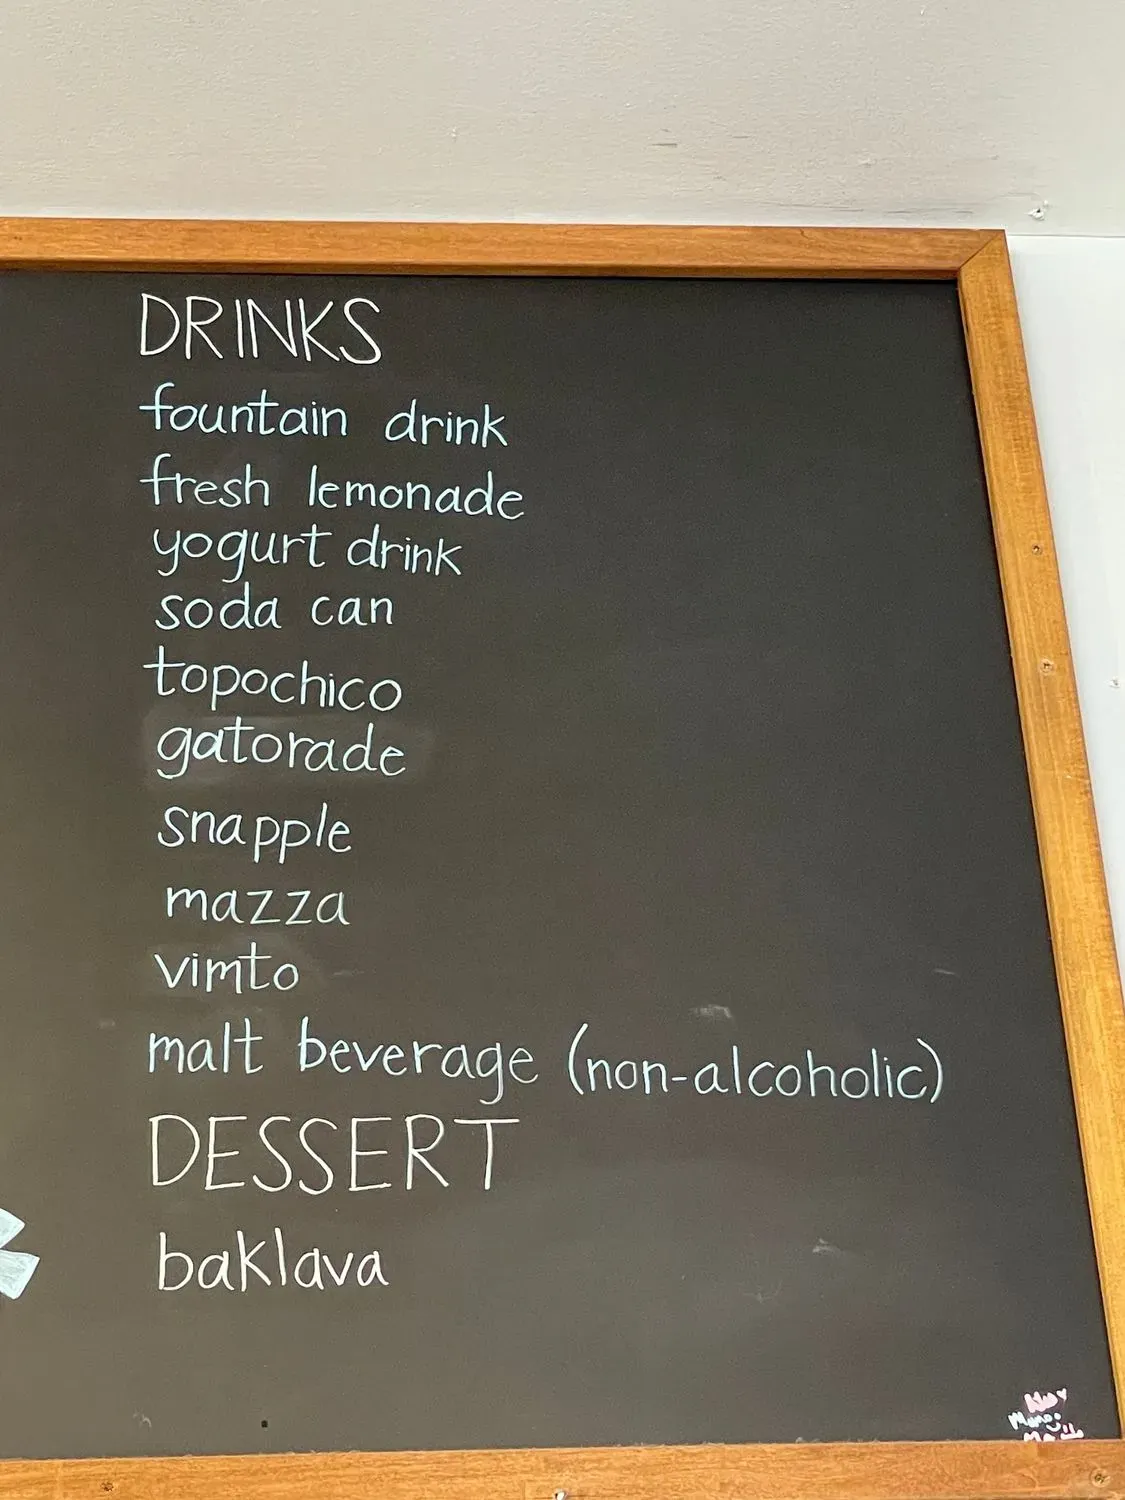 DRINKS
fountain drink
fresh lemonade
yogurt drink
soda can
topochico
gatorade
snapple
mazza
vimto
malt beverage (non-alcoholic)
DESSERT
baklava